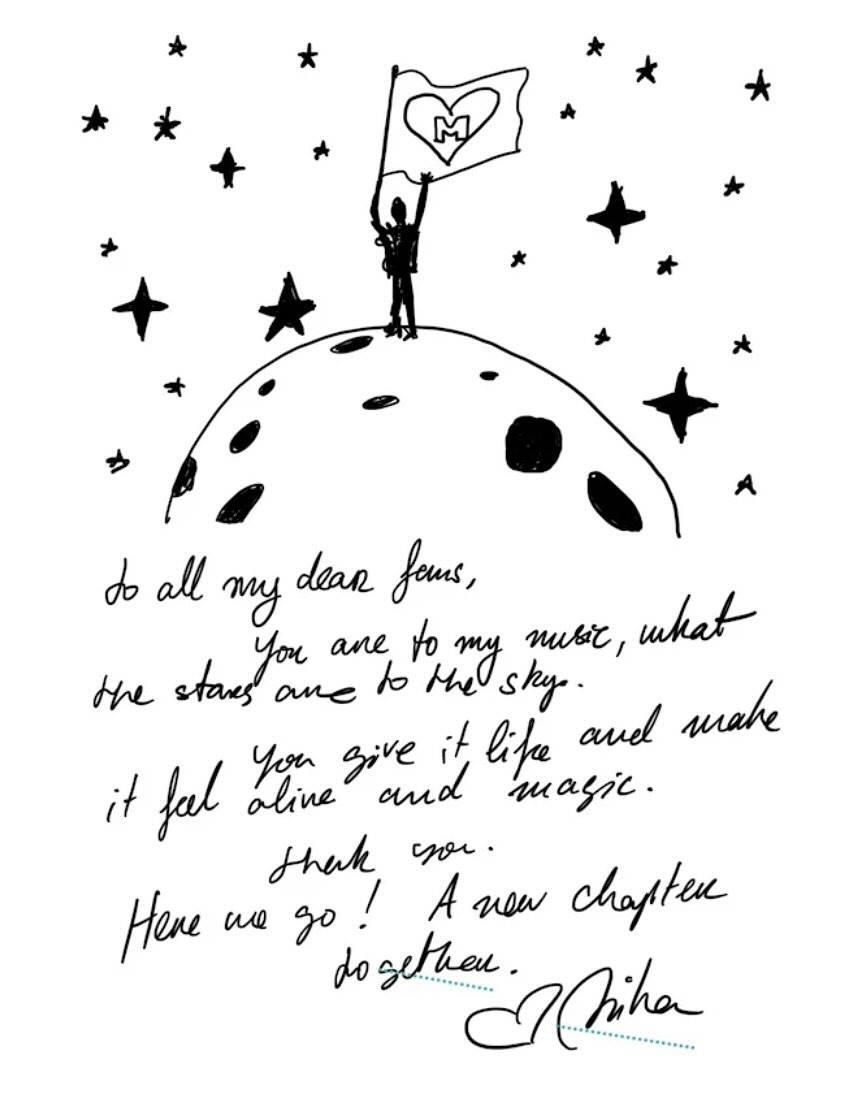 M
to all my dear fans,
You are to my music, what
the stars are to the sky.
You give it life and make
it feel alive and magic.
thank you.
Here we go! A new chapter
together.
Mika